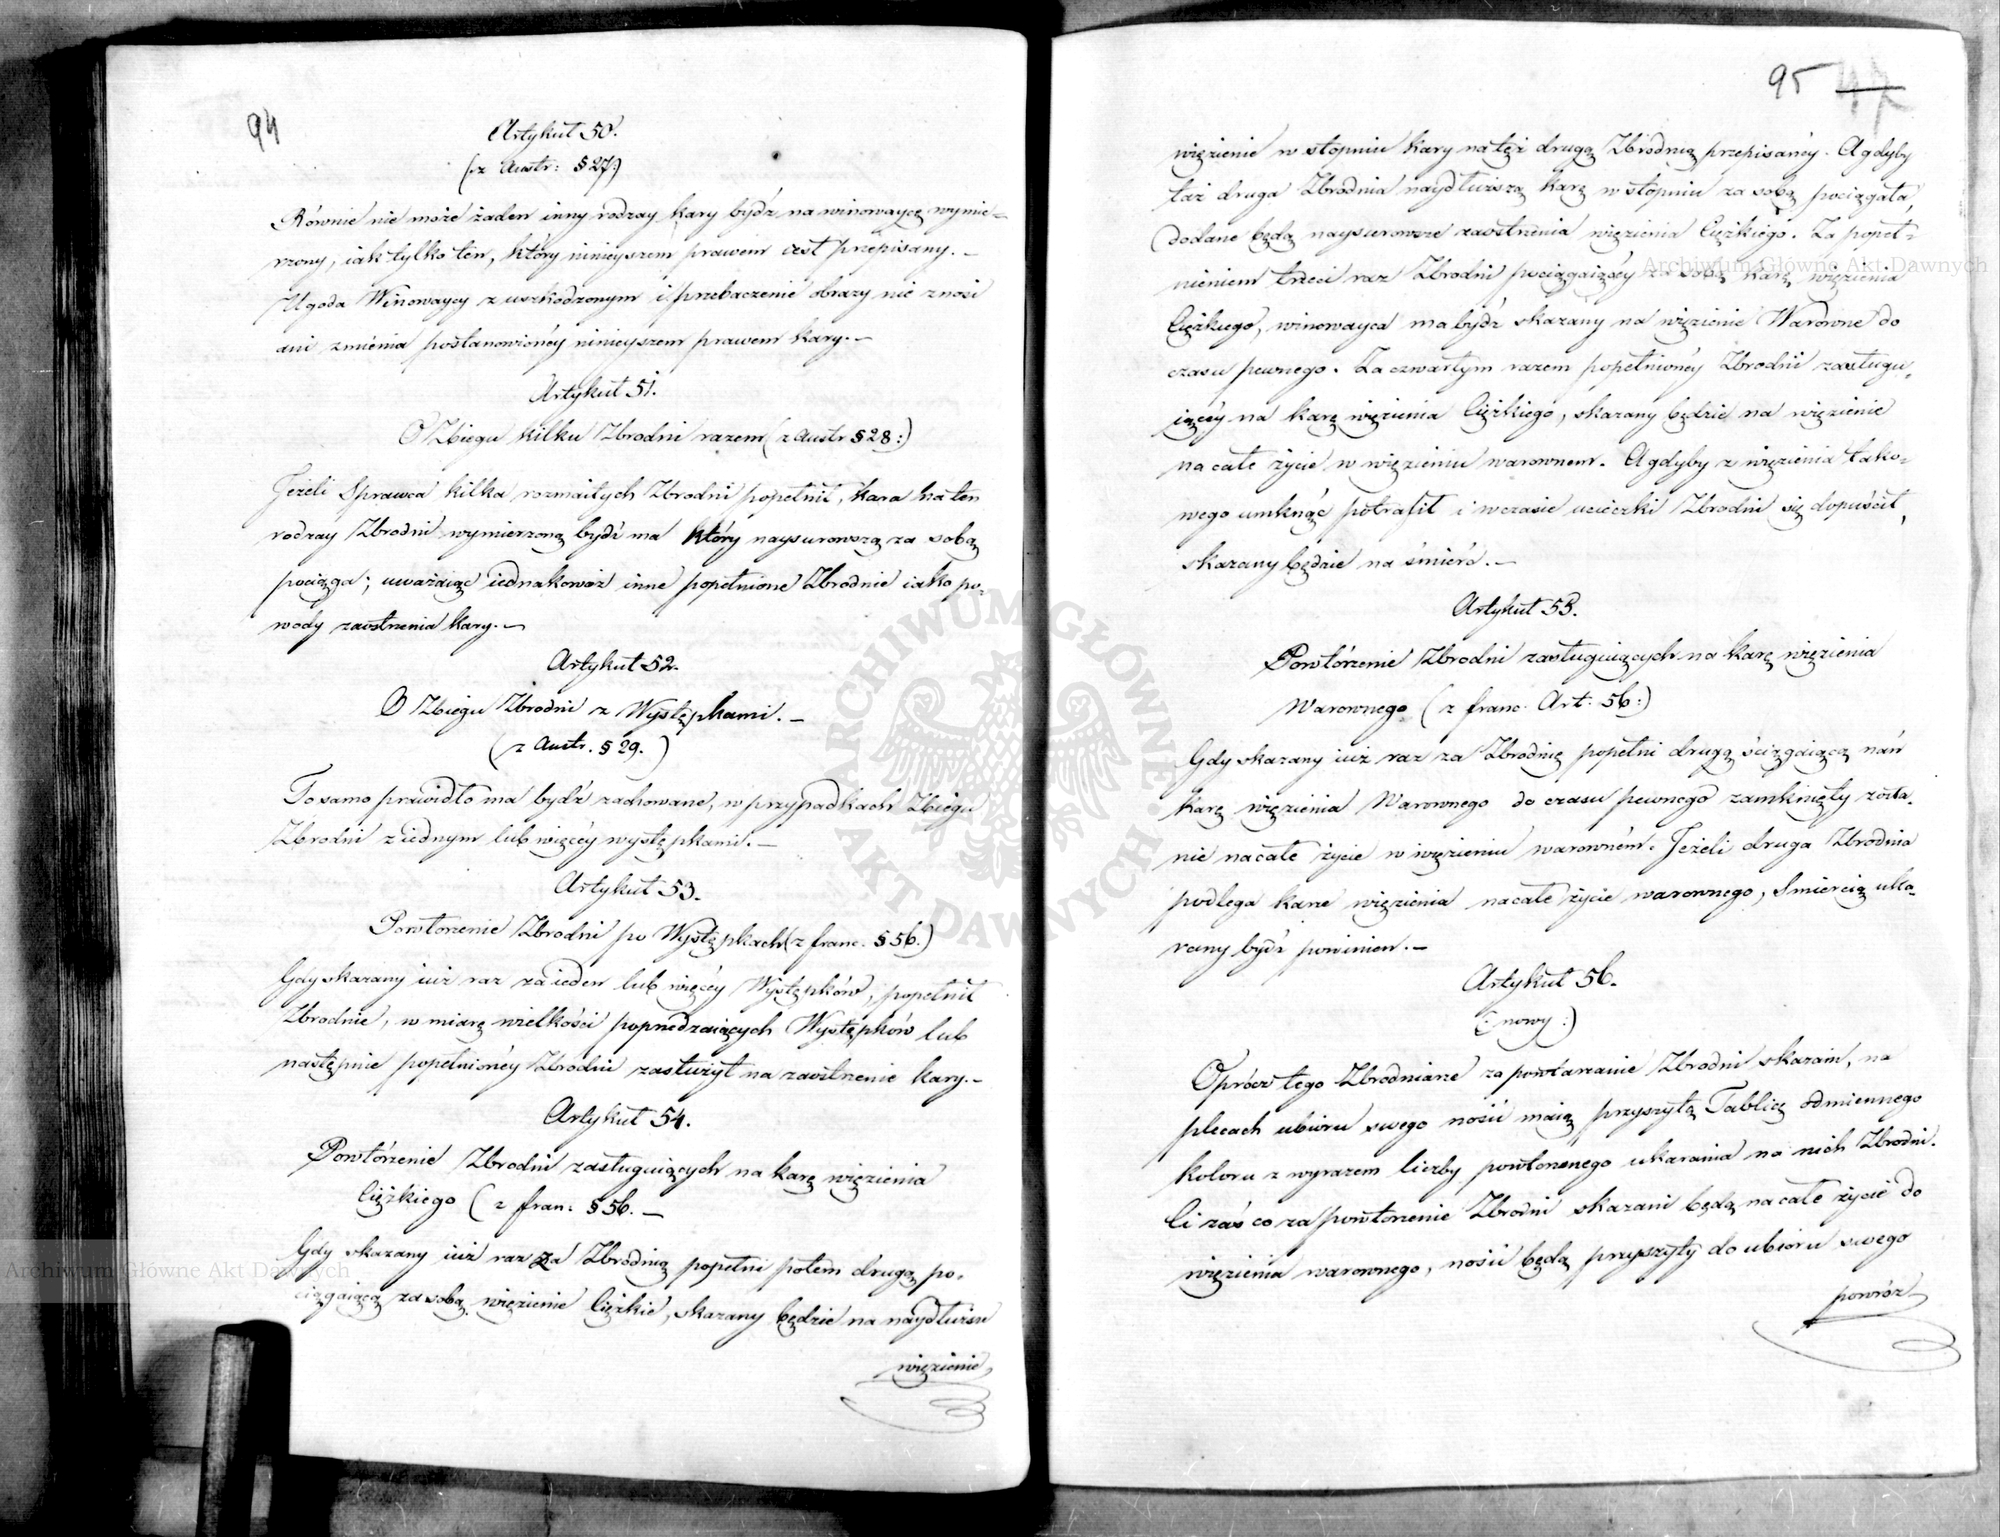 94
Artykuł 50.
(:z Austr: § 27:)
Równie nie może żaden inny rodzay kary bydź na winowaycę wymie-
rzony, iak tylko ten, który ninieyszem prawem iest przepisany. —
Ugoda Winowaycy z uszkodzonym i przebaczenie obrazy nie znosi
ani zmienia postanowionéy ninieyszem prawem kary. —
Artykuł 51.
O Zbiegu kilku Zbrodni razem (z Austr § 28:)
Jeżeli Sprawca kilka rozmaitych Zbrodni popełnił, kara na ten
rodzay Zbrodni wymierzoną bydź ma który naysurowszą za sobą
pociąga; uważaiąc iednakowoż inne popełnione Zbrodnie iako po-
wody zaostrzenia kary. —
Artykuł 52.
O Zbiegu Zbrodni z Występkami. —
(z Austr. § 29.)
To samo prawidło ma bydź zachowane, w przypadkach Zbiegu
Zbrodni z iednym lub więcéy występkami. —
Artykuł 53.
Powtórzenie Zbrodni po Występkach (z franc. § 56.)
Gdy skazany iuż raz za ieden lub więcéy Występków, popełnił
Zbrodnie, w miarę wielkości poprzedzaiących Występków lub
następnie popełnionéy Zbrodni zasłużył na zaostrzenie kary. —
Artykuł 54.
Powtórzenie Zbrodni zasługuiących na karę więzienia
Ciężkiego (z fran: § 56. —
Gdy skazany iuż raz za Zbrodnią popełni potém drugą po-
ciągaiącą za sobą więzienie Ciężkie, skazany będzie na naydłuższe
więzienie
95 47
więzienie w stopniu kary na téż drugą Zbrodnią przepisanéy. A gdyby
taż druga Zbrodnia naydłuższą karę w stopniu za sobą pociągała,
dodane będą naysurowsze zaostrzenia więzienia Ciężkiego. Za popeł-
nieniem trzeci raz Zbrodni pociągaiącéy za sobą karę więzienia
Ciężkiego, winowayca ma bydź skazany na więzienie Warowne do
czasu pewnego. Za czwartym razem popełnionéy Zbrodni zasługu-
iącéy na karę więzienia Ciężkiego, skazany będzie na więzienie
na całe życie w więzieniu warownem. A gdyby z więzienia tako-
wego umknąć potrafił i w czasie ucieczki Zbrodni się dopuścił,
skazany będzie na śmierć. —
Artykuł 55.
Powtórzenie Zbrodni zasługuiących na karę więzienia
Warownego (z franc. Art: 56:)
Gdy skazany iuż raz za Zbrodnię popełni drugą ściągaiącą nań
karę więzienia Warownego do czasu pewnego zamknięty zosta-
nie na całe życie w więzieniu warowném. Jeżeli druga Zbrodnia
podlega karze więzienia na całe życie warownego, Śmiercią uka-
rany bydź powinien. —
Artykuł 56.
(: nowy :)
Oprócz tego Zbrodniarze za powtarzanie Zbrodni skazani, na
plecach ubioru swego nosić maią przyszytą Tablicę odmiennego
koloru z wyrazem liczby powtórzonego ukarania na nich Zbrodni.
Ci zaś co za powtórzenie Zbrodni skazani będą na całe życie do
więzienia warownego, nosić będą przyszyty do ubioru swego
powróz
ARCHIWUM GŁÓWNE AKT DAWNYCH
Archiwum Główne Akt Dawnych
Archiwum Główne Akt Dawnych